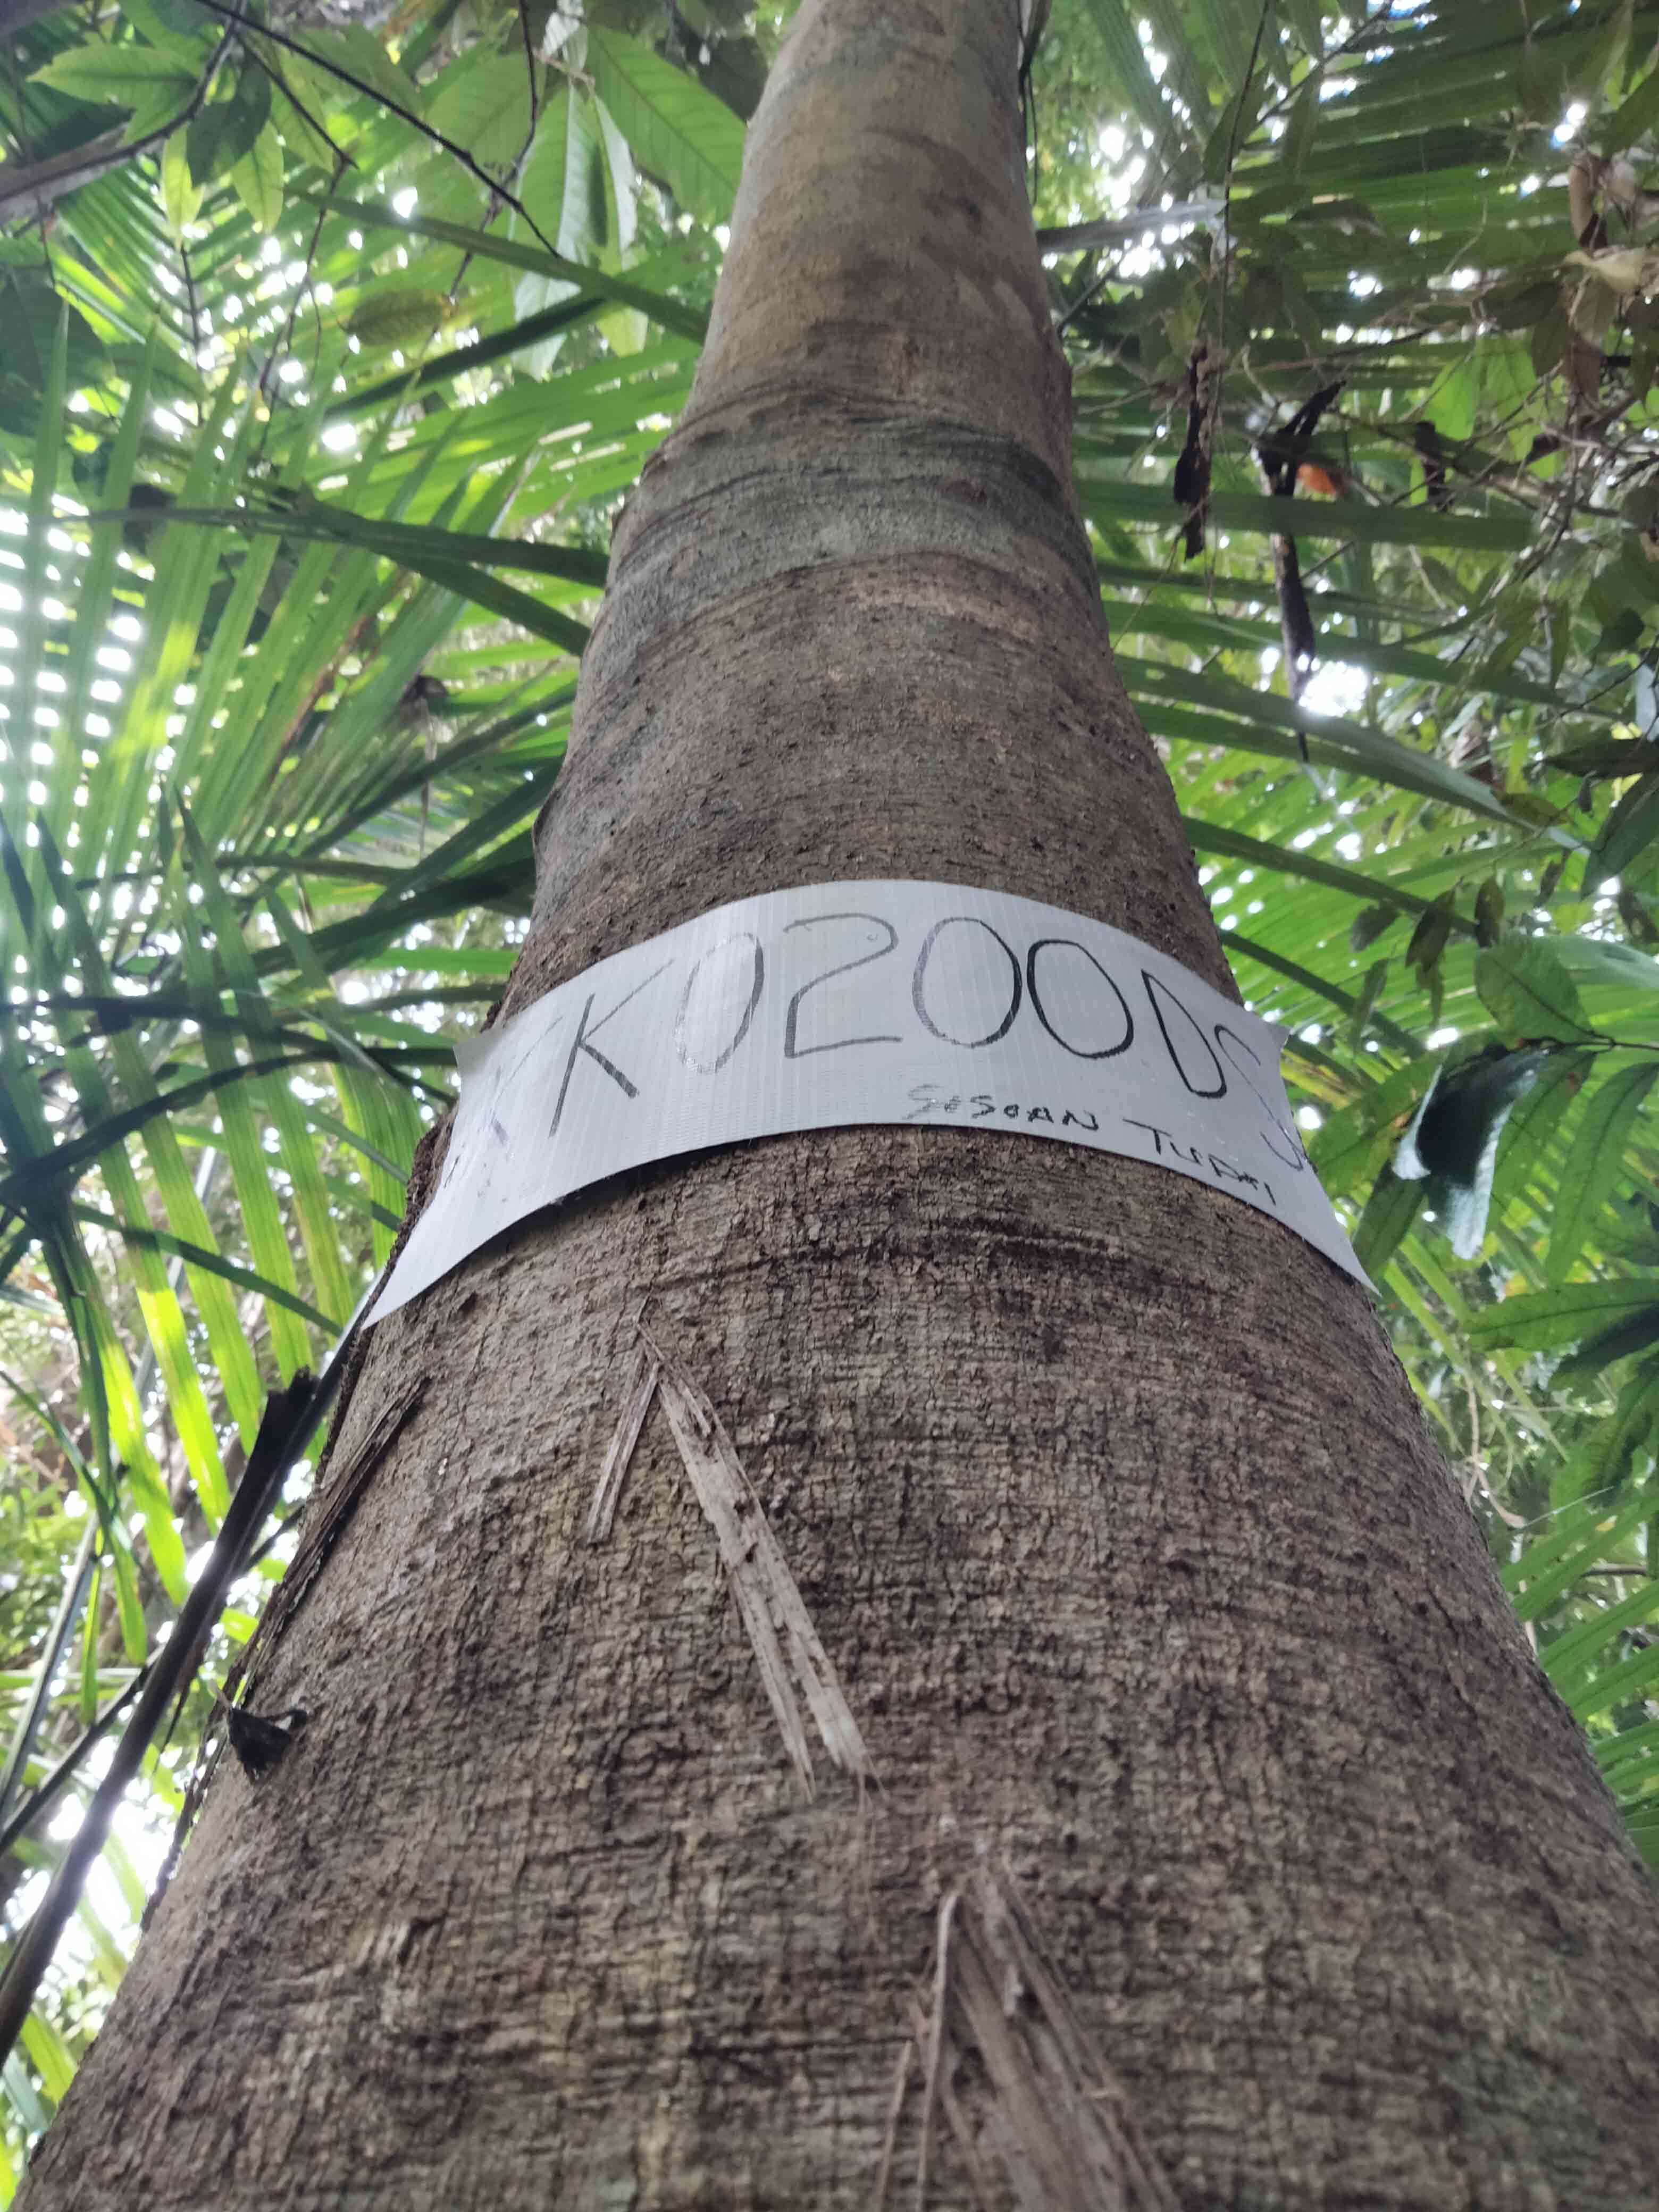 KK0200DS
SESOAN TUPAI